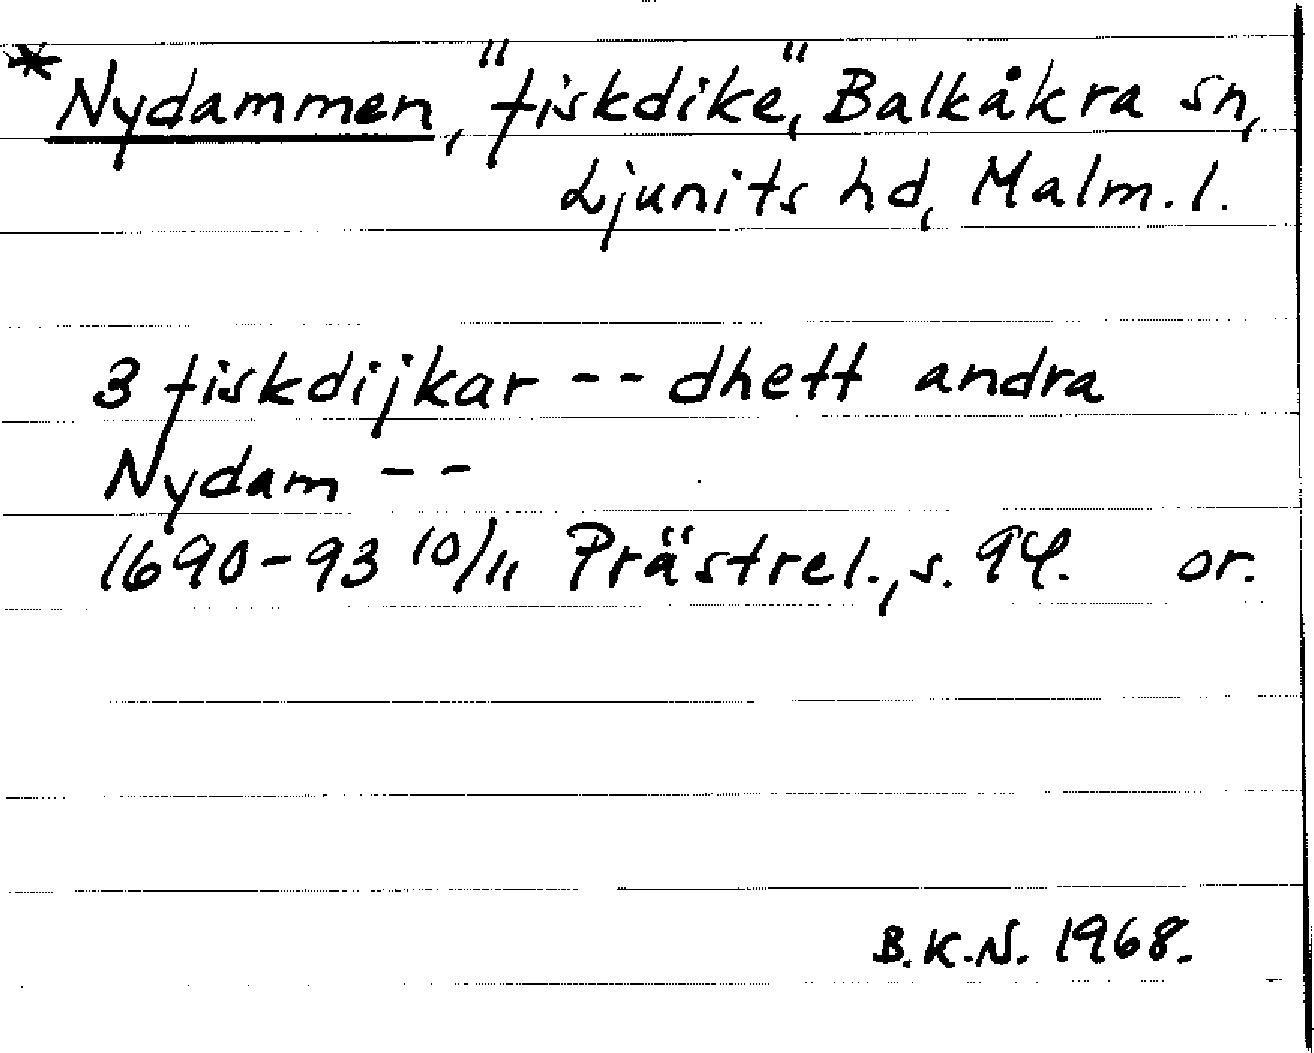 *Nydammen, "fiskdike", Balkåkra sn,
Ljunits hd, Malm. l.
3 fiskdijkar -- dhett andra
Nydam --
1690-93 10/11 Prästrel., s. 94. or.
B.K.N. 1968.